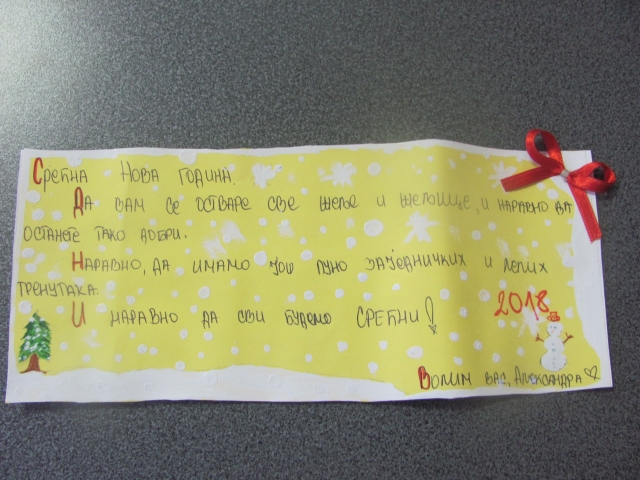 Срећна Нова година.
Да вам се остваре све жеље и жељице, и наравно да
останете тако добри.
Наравно, да имамо још пуно заједничких и лепих
тренутака.
И наравно да сви будемо срећни!
2018
Волим вас, Александра